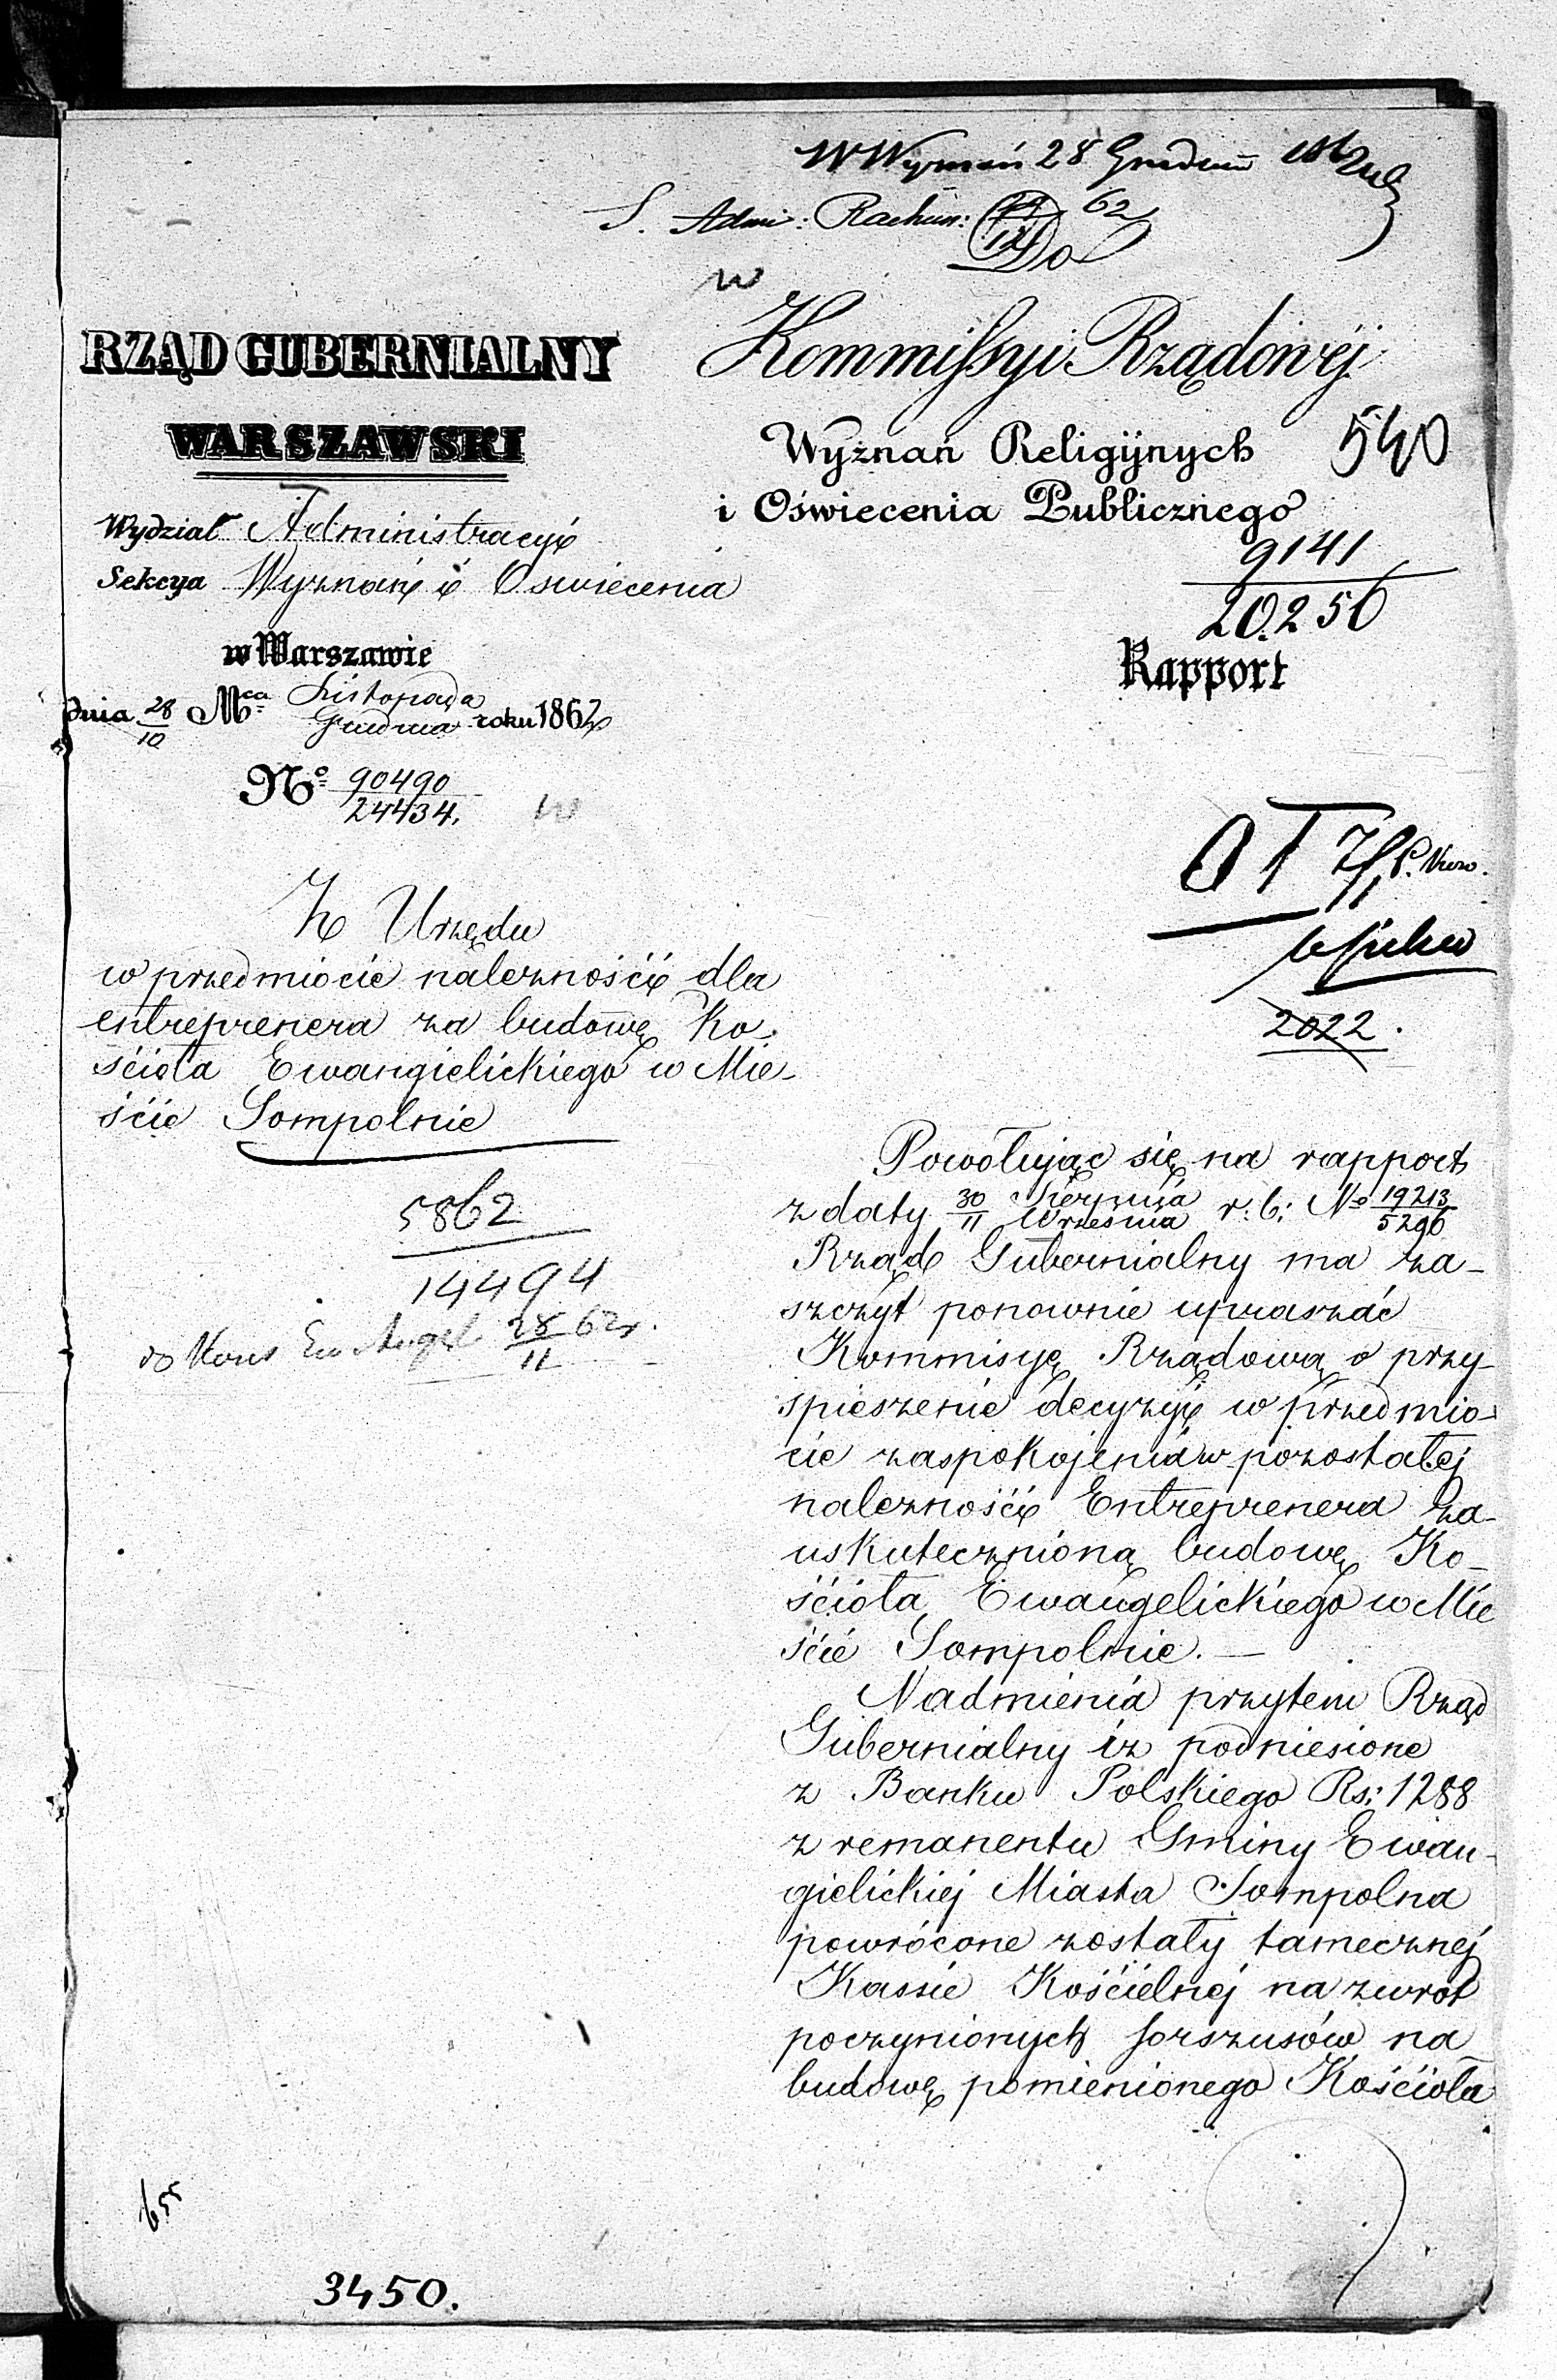 W Wyznań 28 Grudnia
S. Admi: Rachun: 62
Do
RZĄD GUBERNIALNY
WARSZAWSKI
Wydział Administracyi
Sekcya Wyznań i Oświecenia
w Warszawie
dnia 28/10 Mca Listopada/Grudnia roku 1862
No 90490/24434.
Kommissyi Rządowéj
Wyznań Religijnych
i Oświecenia Publicznego
540
9141
20256
Rapport
Z Urzędu
w przedmiocie należności dla
entreprenera za budowę Ko-
ścioła Ewangielickiego w Mie-
ście Sompolnie
5862
14494
do Kons Ew Augsb 28/11 62 r.
2022.
Powołując się na rapport
z daty 30/11 Sierpnia/Września r: b: No 19213/5296
Rząd Gubernialny ma za-
szczyt ponownie upraszać
Kommisyę Rządową o przy-
spieszenie decyzyi w przedmio-
cie zaspokojenia w pozostałej
należności Entreprenera za
uskutecznioną budowę Ko-
ścioła Ewangelickiego w Mie
ście Sompolnie. —
Nadmienia przytem Rząd
Gubernialny iż podniesione
z Banku Polskiego Rs: 1288
z remanentu Gminy Ewan-
gielickiej Miasta Sompolna
powrócone zostały tamecznej
Kassie Kościelnej na zwrot
poczynionych forszusów na
budowę pomienionego Kościoła
3450.